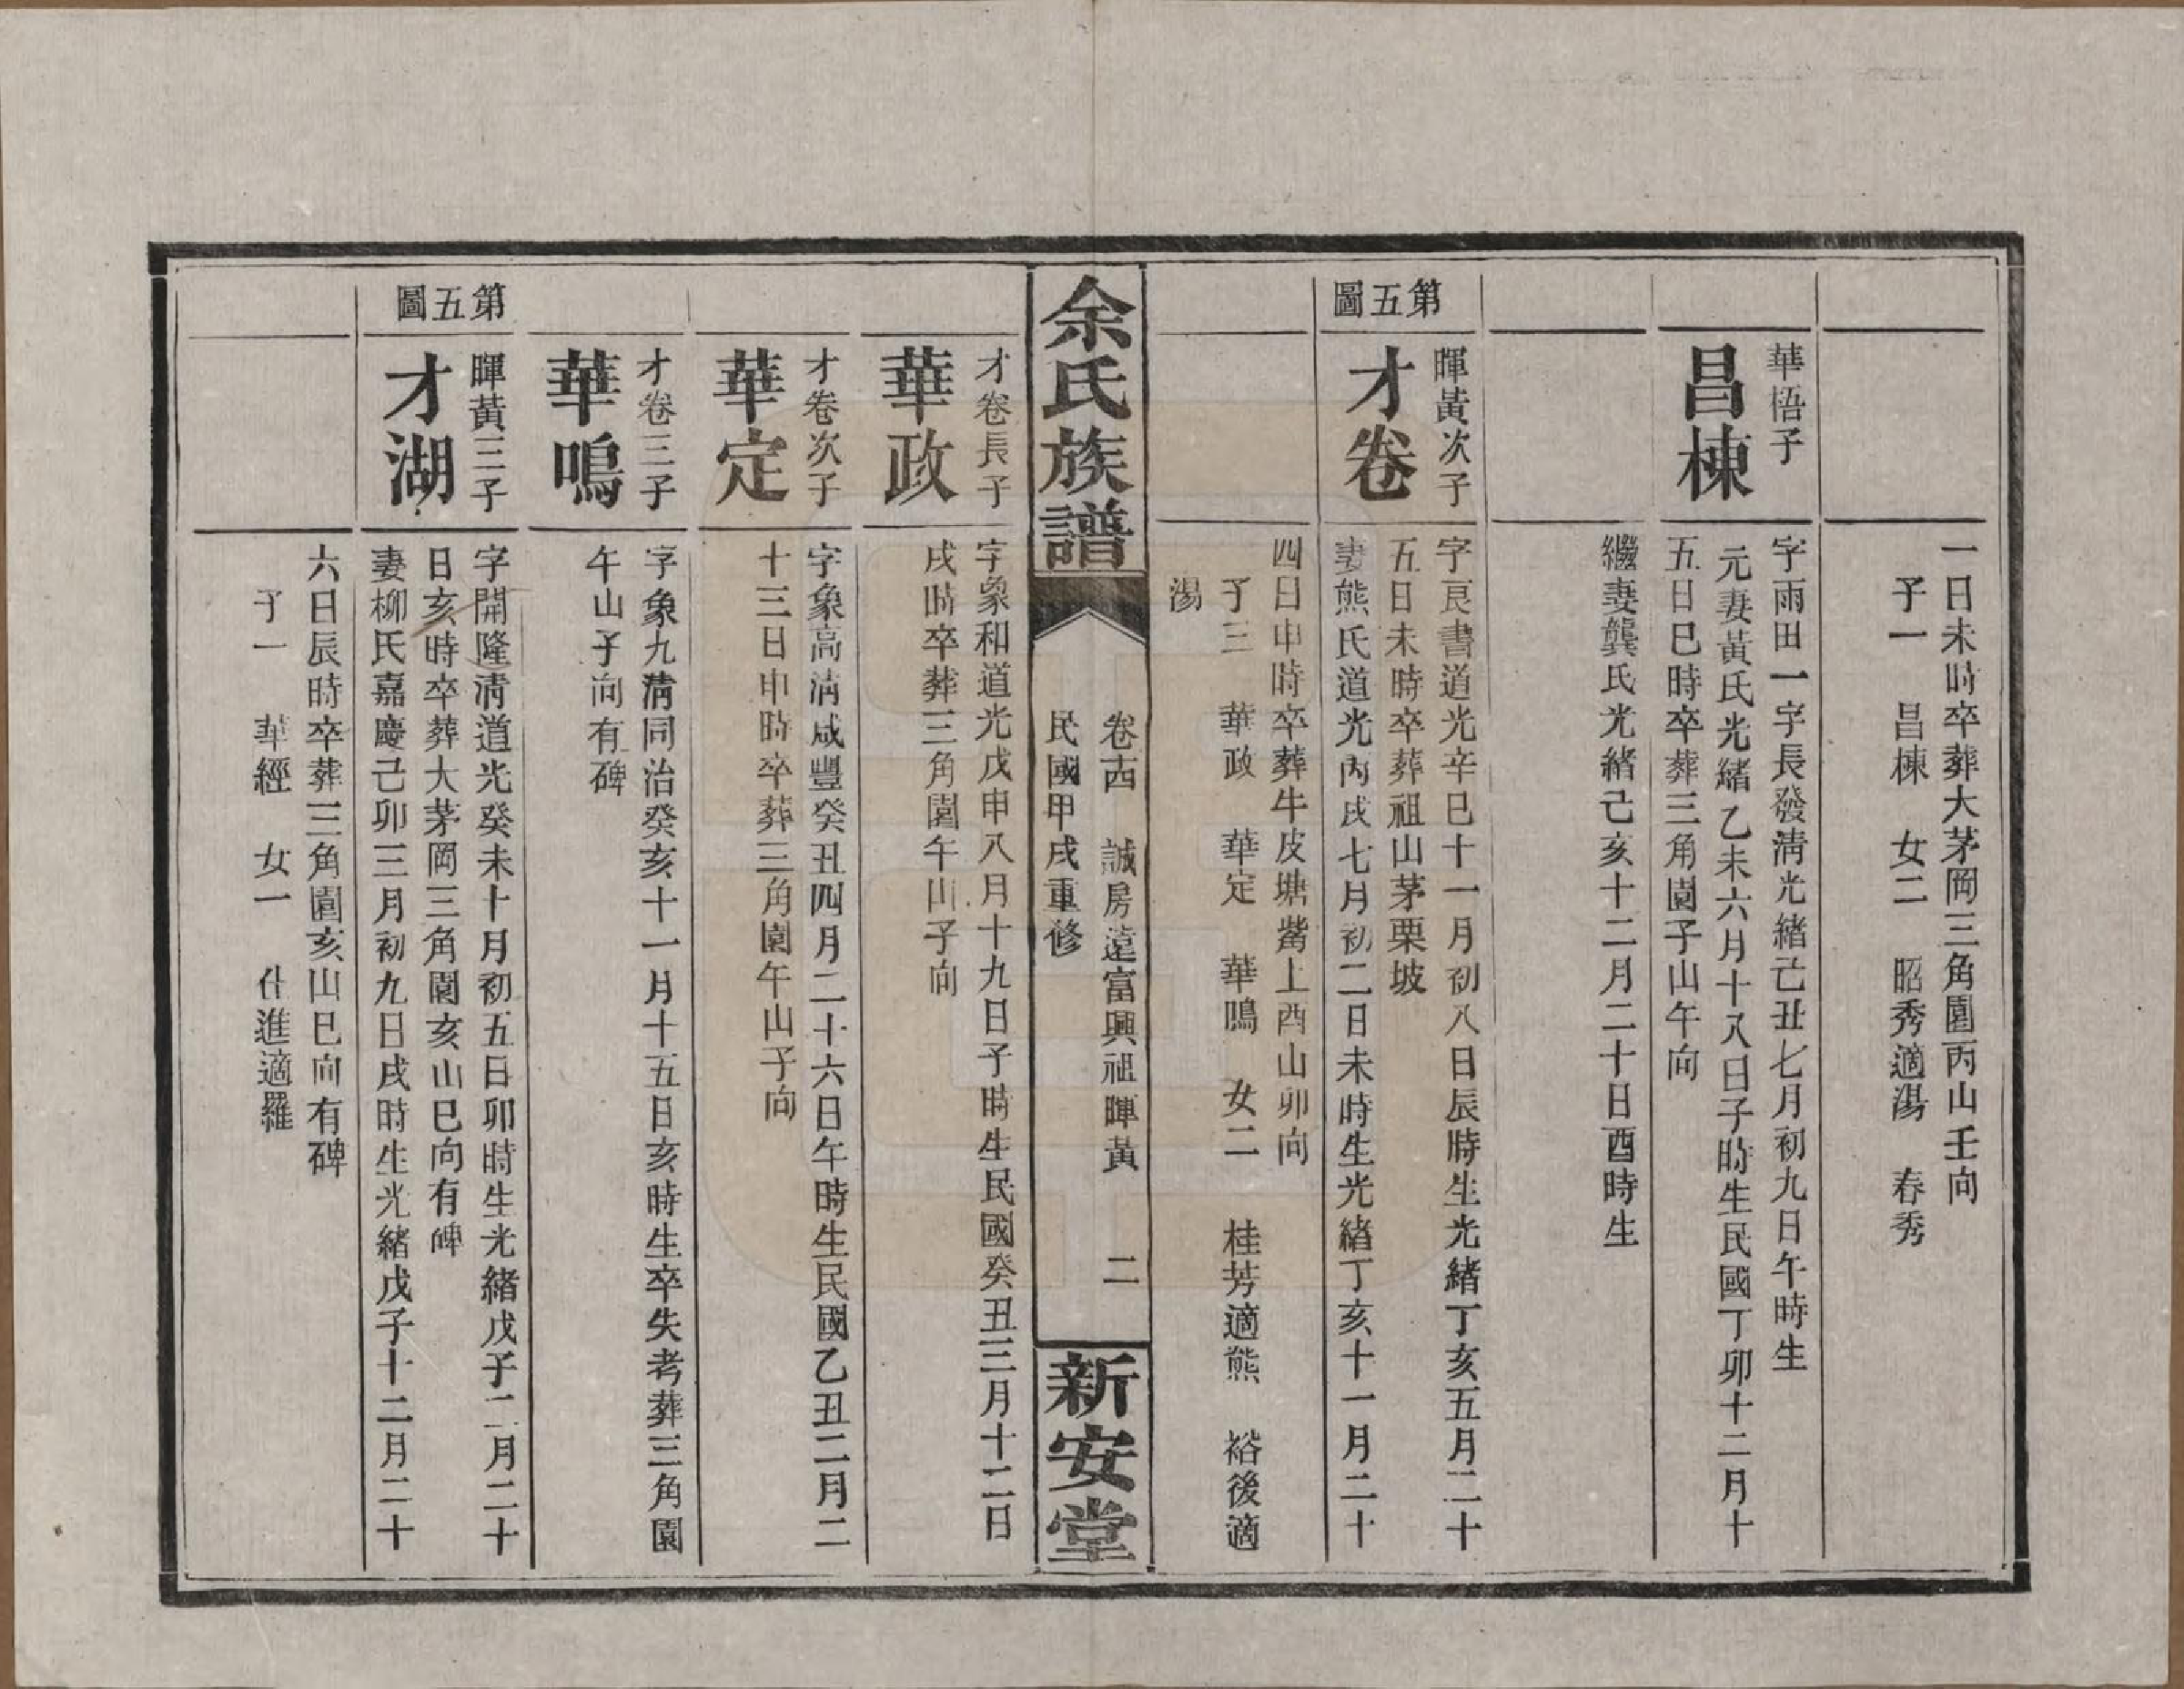 一日未時卒葬大茅岡三角園丙山壬向
子一　昌棟　女二　昭秀適湯　春秀
華悟子
昌棟
字雨田一字長發淸光緒己丑七月初九日午時生
元妻黃氏光緒乙未六月十八日子時生民國丁卯十二月十
五日巳時卒葬三角園子山午向
繼妻龔氏光緒己亥十二月二十日酉時生
第五圖
暉黃次子
才卷
字良書道光辛巳十一月初八日辰時生光緒丁亥五月二十
五日未時卒葬祖山茅栗坡
妻熊氏道光丙戌七月初二日未時生光緒丁亥十一月二十
四日申時卒葬牛皮塘觜上酉山卯向
子三　華政　華定　華鳴　女二　桂芳適熊　裕後適
湯
余氏族譜
卷西　誠房遠富興祖暉黃　二
民國甲戌重修
新安堂
才卷長子
華政
字象和道光戊申八月十九日子時生民國癸丑三月十二日
戌時卒葬三角園午山子向
才卷次子
華定
字象高淸咸豐癸丑四月二十六日午時生民國乙丑二月二
十三日申時卒葬三角園午山子向
才卷三子
華鳴
字象九淸同治癸亥十一月十五日亥時生卒失考葬三角園
午山子向有碑
第五圖
暉黃三子
才湖
字開隆淸道光癸未十月初五日卯時生光緒戊子二月二十
日亥時卒葬大茅岡三角園亥山巳向有碑
妻柳氏嘉慶己卯三月初九日戌時生光緒戊子十二月二十
六日辰時卒葬三角園亥山巳向有碑
子一　華經　女一　仕進適羅